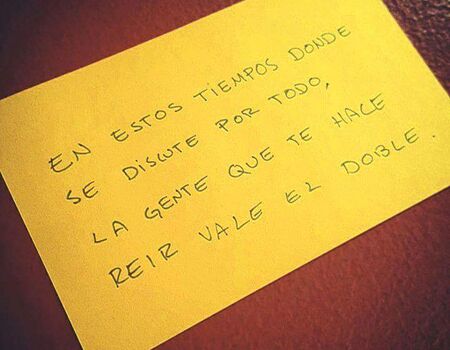 EN ESTOS TIEMPOS DONDE
SE DISCUTE POR TODO,
LA GENTE QUE TE HACE
REIR VALE EL DOBLE.